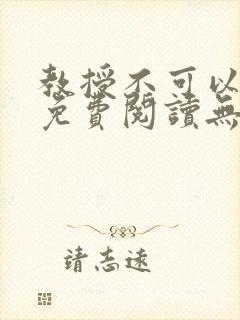 教授不可以
免費閱讀無
靖志遠